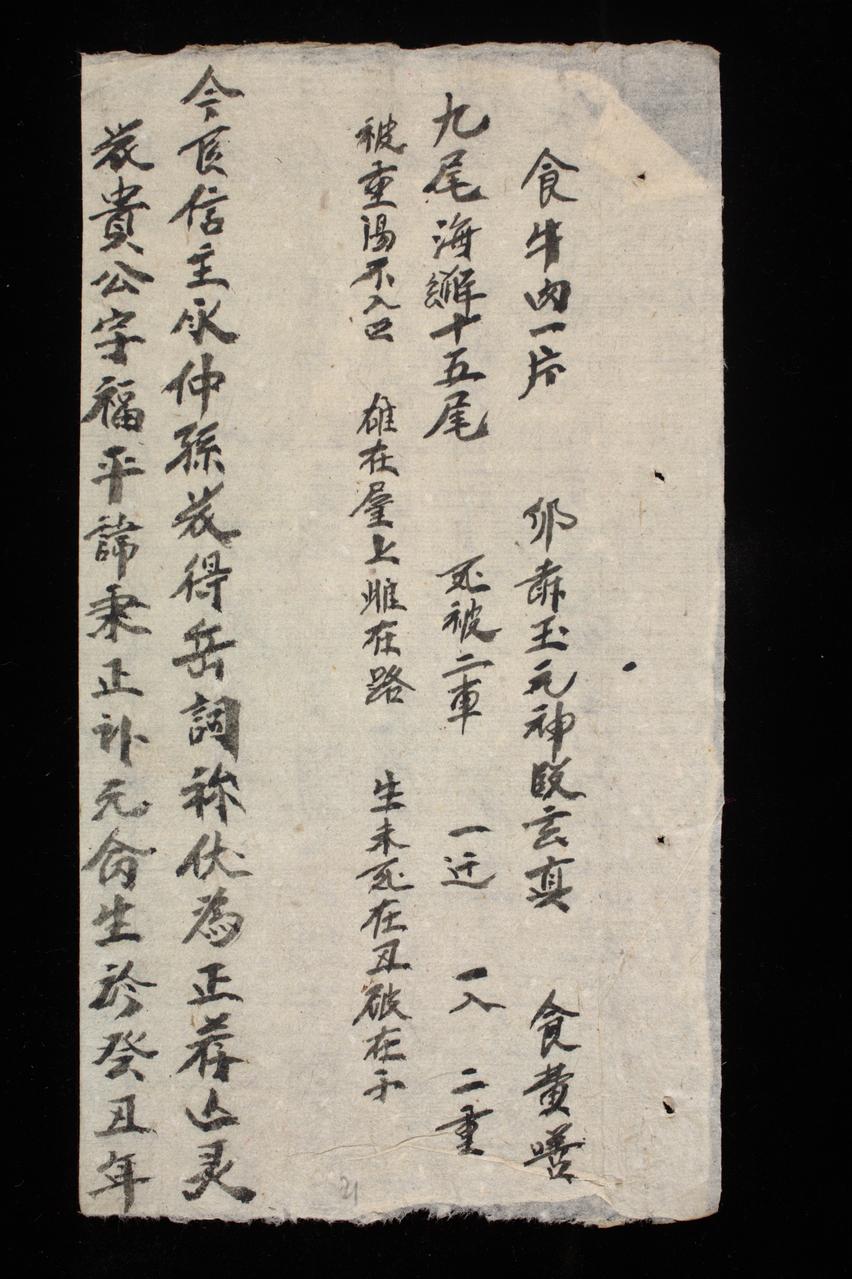 食牛肉一片 卯赤玉元神脱玄真 食黄
九尾海十五尾 死被二車 一迁 一入 二重
被重陽不入口 雄在屋上雌在路 生未死在丑破在
今信主永仲孫茂得岳詞祢伏為正荐亾灵
茂貴公字福平諱秉正补元命生於癸丑年
21